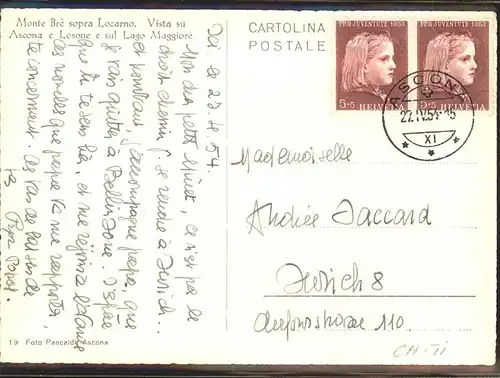 Monte Brè sopra Locarno. Vista su
Ascona e Losone e sul Lago Maggiore
CARTOLINA
POSTALE
PRO JUVENTUTE 1953
5+5 HELVETIA
PRO JUVENTUTE 1953
5+5 HELVETIA
ASCONA
22.IV.54
XI
Ici ce 27.4.54.
Mon cher petit , ce n'est pas le
droit chemin se rendre à Zurich...
et pourtant, j'accompagne papa, que
je vais quitter à Bellinzone.
que tu te sens, et me réjouis d'avance
des nouvelles que papa va me rapporter,
te concernant. pas de
Mademoiselle
Andrée Jaccard
Zürich 8
110
19 Foto Pancaldi Ascona
CH-TI